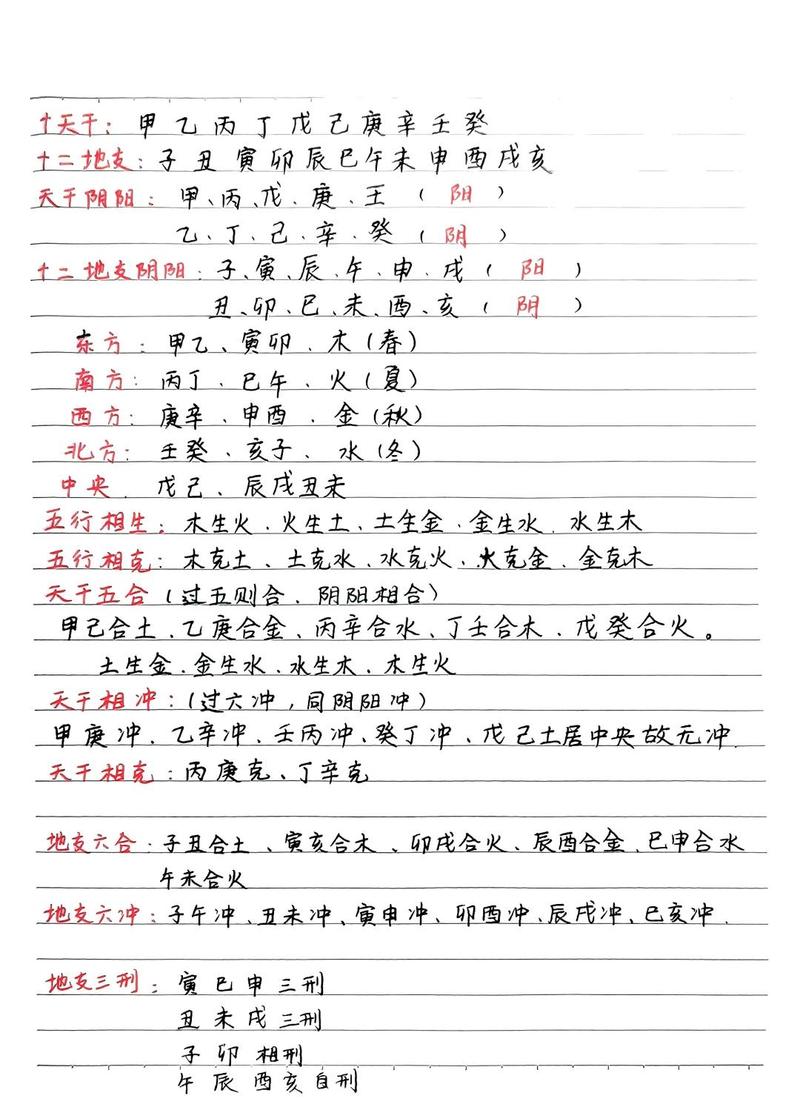 十天干：甲乙丙丁戊己庚辛壬癸
十二地支：子丑寅卯辰巳午未申酉戌亥
天干阴阳：甲、丙、戊、庚、王（阳）
乙、丁、己、辛、癸（阴）
十二地支阴阳：子、寅、辰、午、申、戌（阳）
丑、卯、巳、未、酉、亥（阴）
东方：甲乙、寅卯、木（春）
南方：丙丁、巳午、火（夏）
西方：庚辛、申酉、金（秋）
北方：壬癸、亥子、水（冬）
中央 戊己、辰戌丑未
五行相生：木生火、火生土、土生金、金生水、水生木
五行相克：木克土、土克水、水克火、火克金、金克木
天干五合（过五则合、阴阳相合）
甲己合土、乙庚合金、丙辛合水、丁壬合木、戊癸合火。
土生金、金生水、水生木、木生火
天干相冲：（过六冲，同阴阳冲）
甲庚冲、乙辛冲、壬丙冲、癸丁冲、戊己土居中央故无冲.
天干相克：丙庚克、丁辛克
地支六合：子丑合土、寅亥合木、卯戌合火、辰酉合金、巳申合水
午未合火
地支六冲：子午冲、丑未冲、寅申冲、卯酉冲、辰戌冲、巳亥冲.
地支三刑：寅巳申三刑
丑未戌三刑
子卯相刑
午辰酉亥自刑